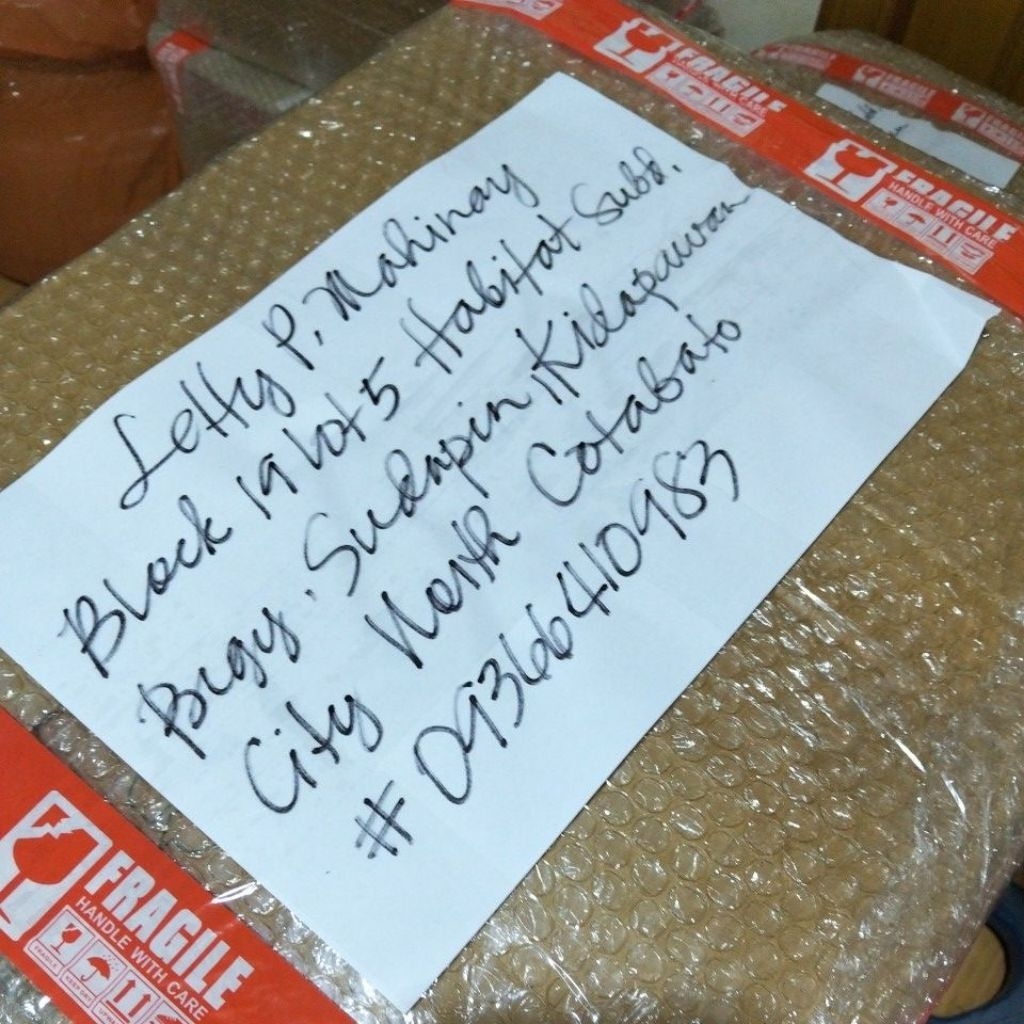 FRAGILE
HANDLE WITH CARE
FRAGILE
HANDLE WITH CARE
Letty P. Mahinay
Block 19 Lot 5 Habitat Subd.
Brgy. Sudapin, Kidapawan
City North Cotabato
# 09366410983
FRAGILE
HANDLE WITH CARE
FRAGILE
KEEP DRY